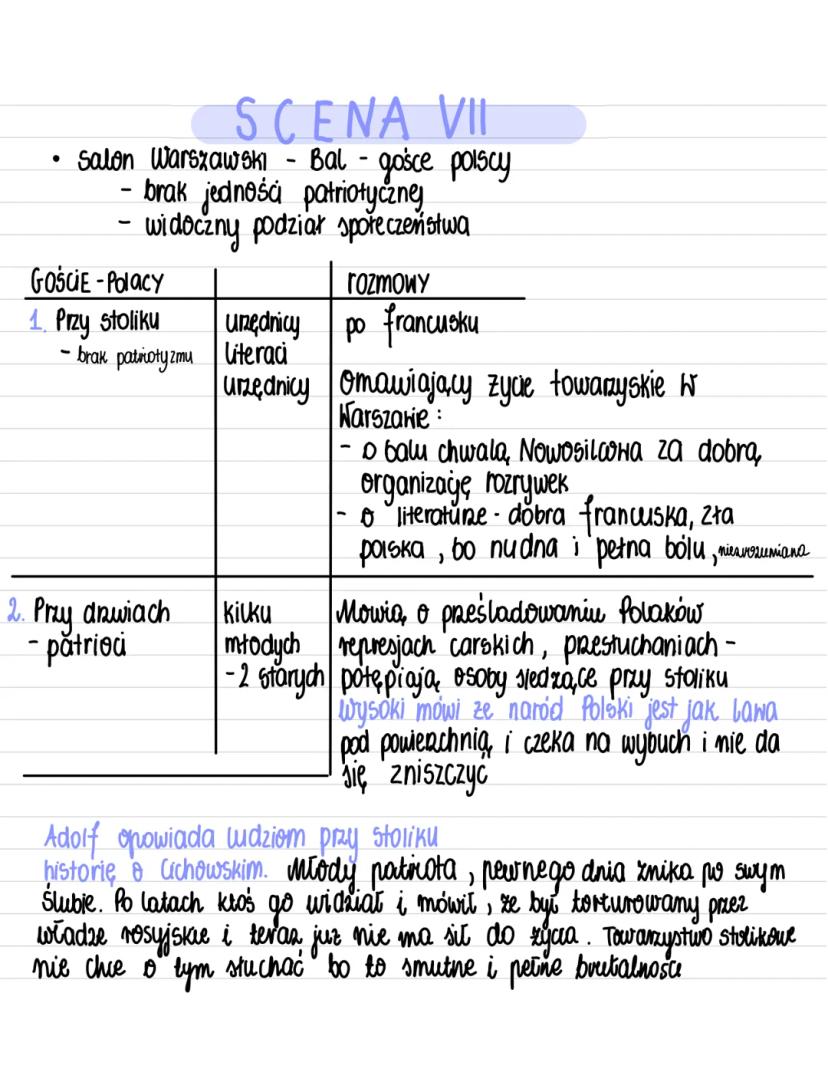 SCENA VII
• Salon Warszawski - Bal - gośce polscy
- brak jedności patriotycznej
- widoczny podział społeczeństwa
GOŚCIE - POLACY
ROZMOWY
1. Przy stoliku
- brak patriotyzmu
urzędnicy
literaci
urzędnicy
po francusku
Omawiający życie towarzyskie w
Warszawie:
- o balu chwalą Nowosilcowa za dobrą
organizację rozrywek
- o literaturze - dobra francuska, zła
polska, bo nudna i pełna bólu, niezrozumiana
2. Przy drzwiach
- patrioci
kilku
młodych
- 2 starych
Mówią o prześladowaniu Polaków
represjach carskich, przesłuchaniach -
potępiają osoby siedzące przy stoliku
Wysoki mówi że naród Polski jest jak lawa
pod powierzchnią i czeka na wybuch i nie da
się zniszczyć
Adolf opowiada ludziom przy stoliku
historię o Cichowskim. Młody patriota, pewnego dnia znika po swym
ślubie. Po latach ktoś go widział i mówił, że był torturowany przez
władze rosyjskie i teraz już nie ma sił do życia. Towarzystwo stolikowe
nie chce o tym słuchać bo to smutne i pełne brutalności